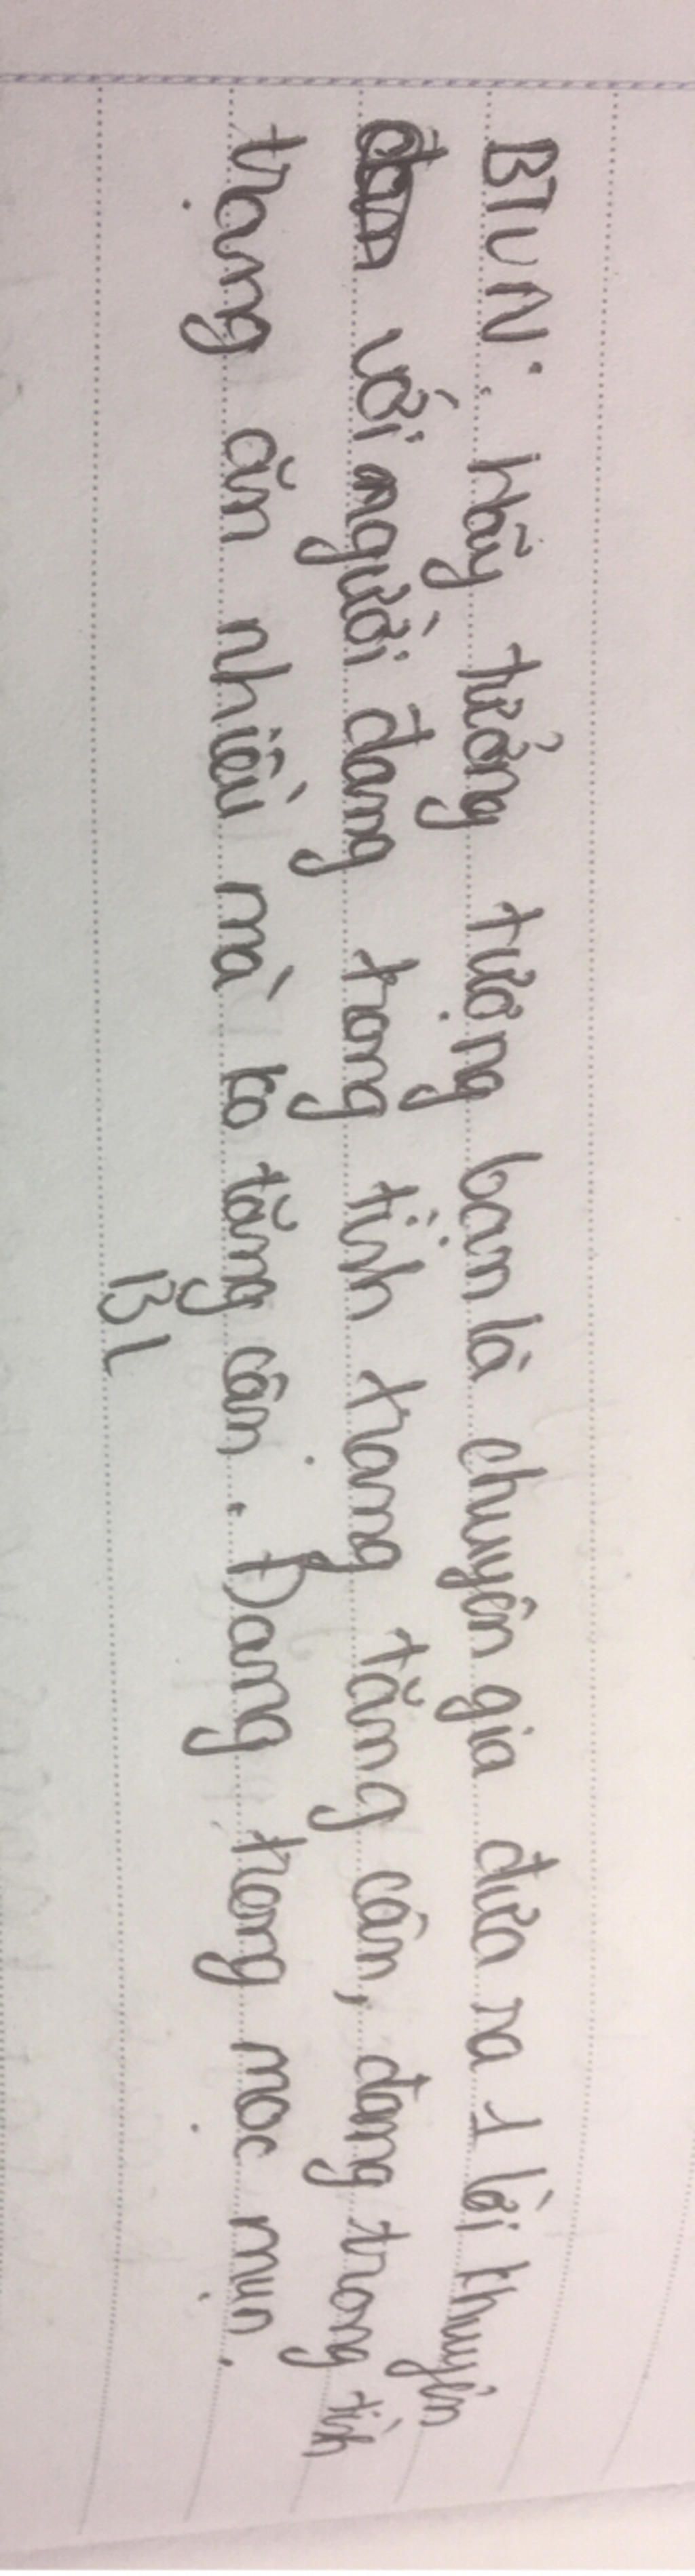 BTVN: Hãy tưởng tượng bạn là chuyên gia đưa ra 1 lời khuyên
với người đang trong tình trạng tăng cân, đang trong tình
trạng ăn nhiều mà ko tăng cân. Đang trong mọc mụn.
BL